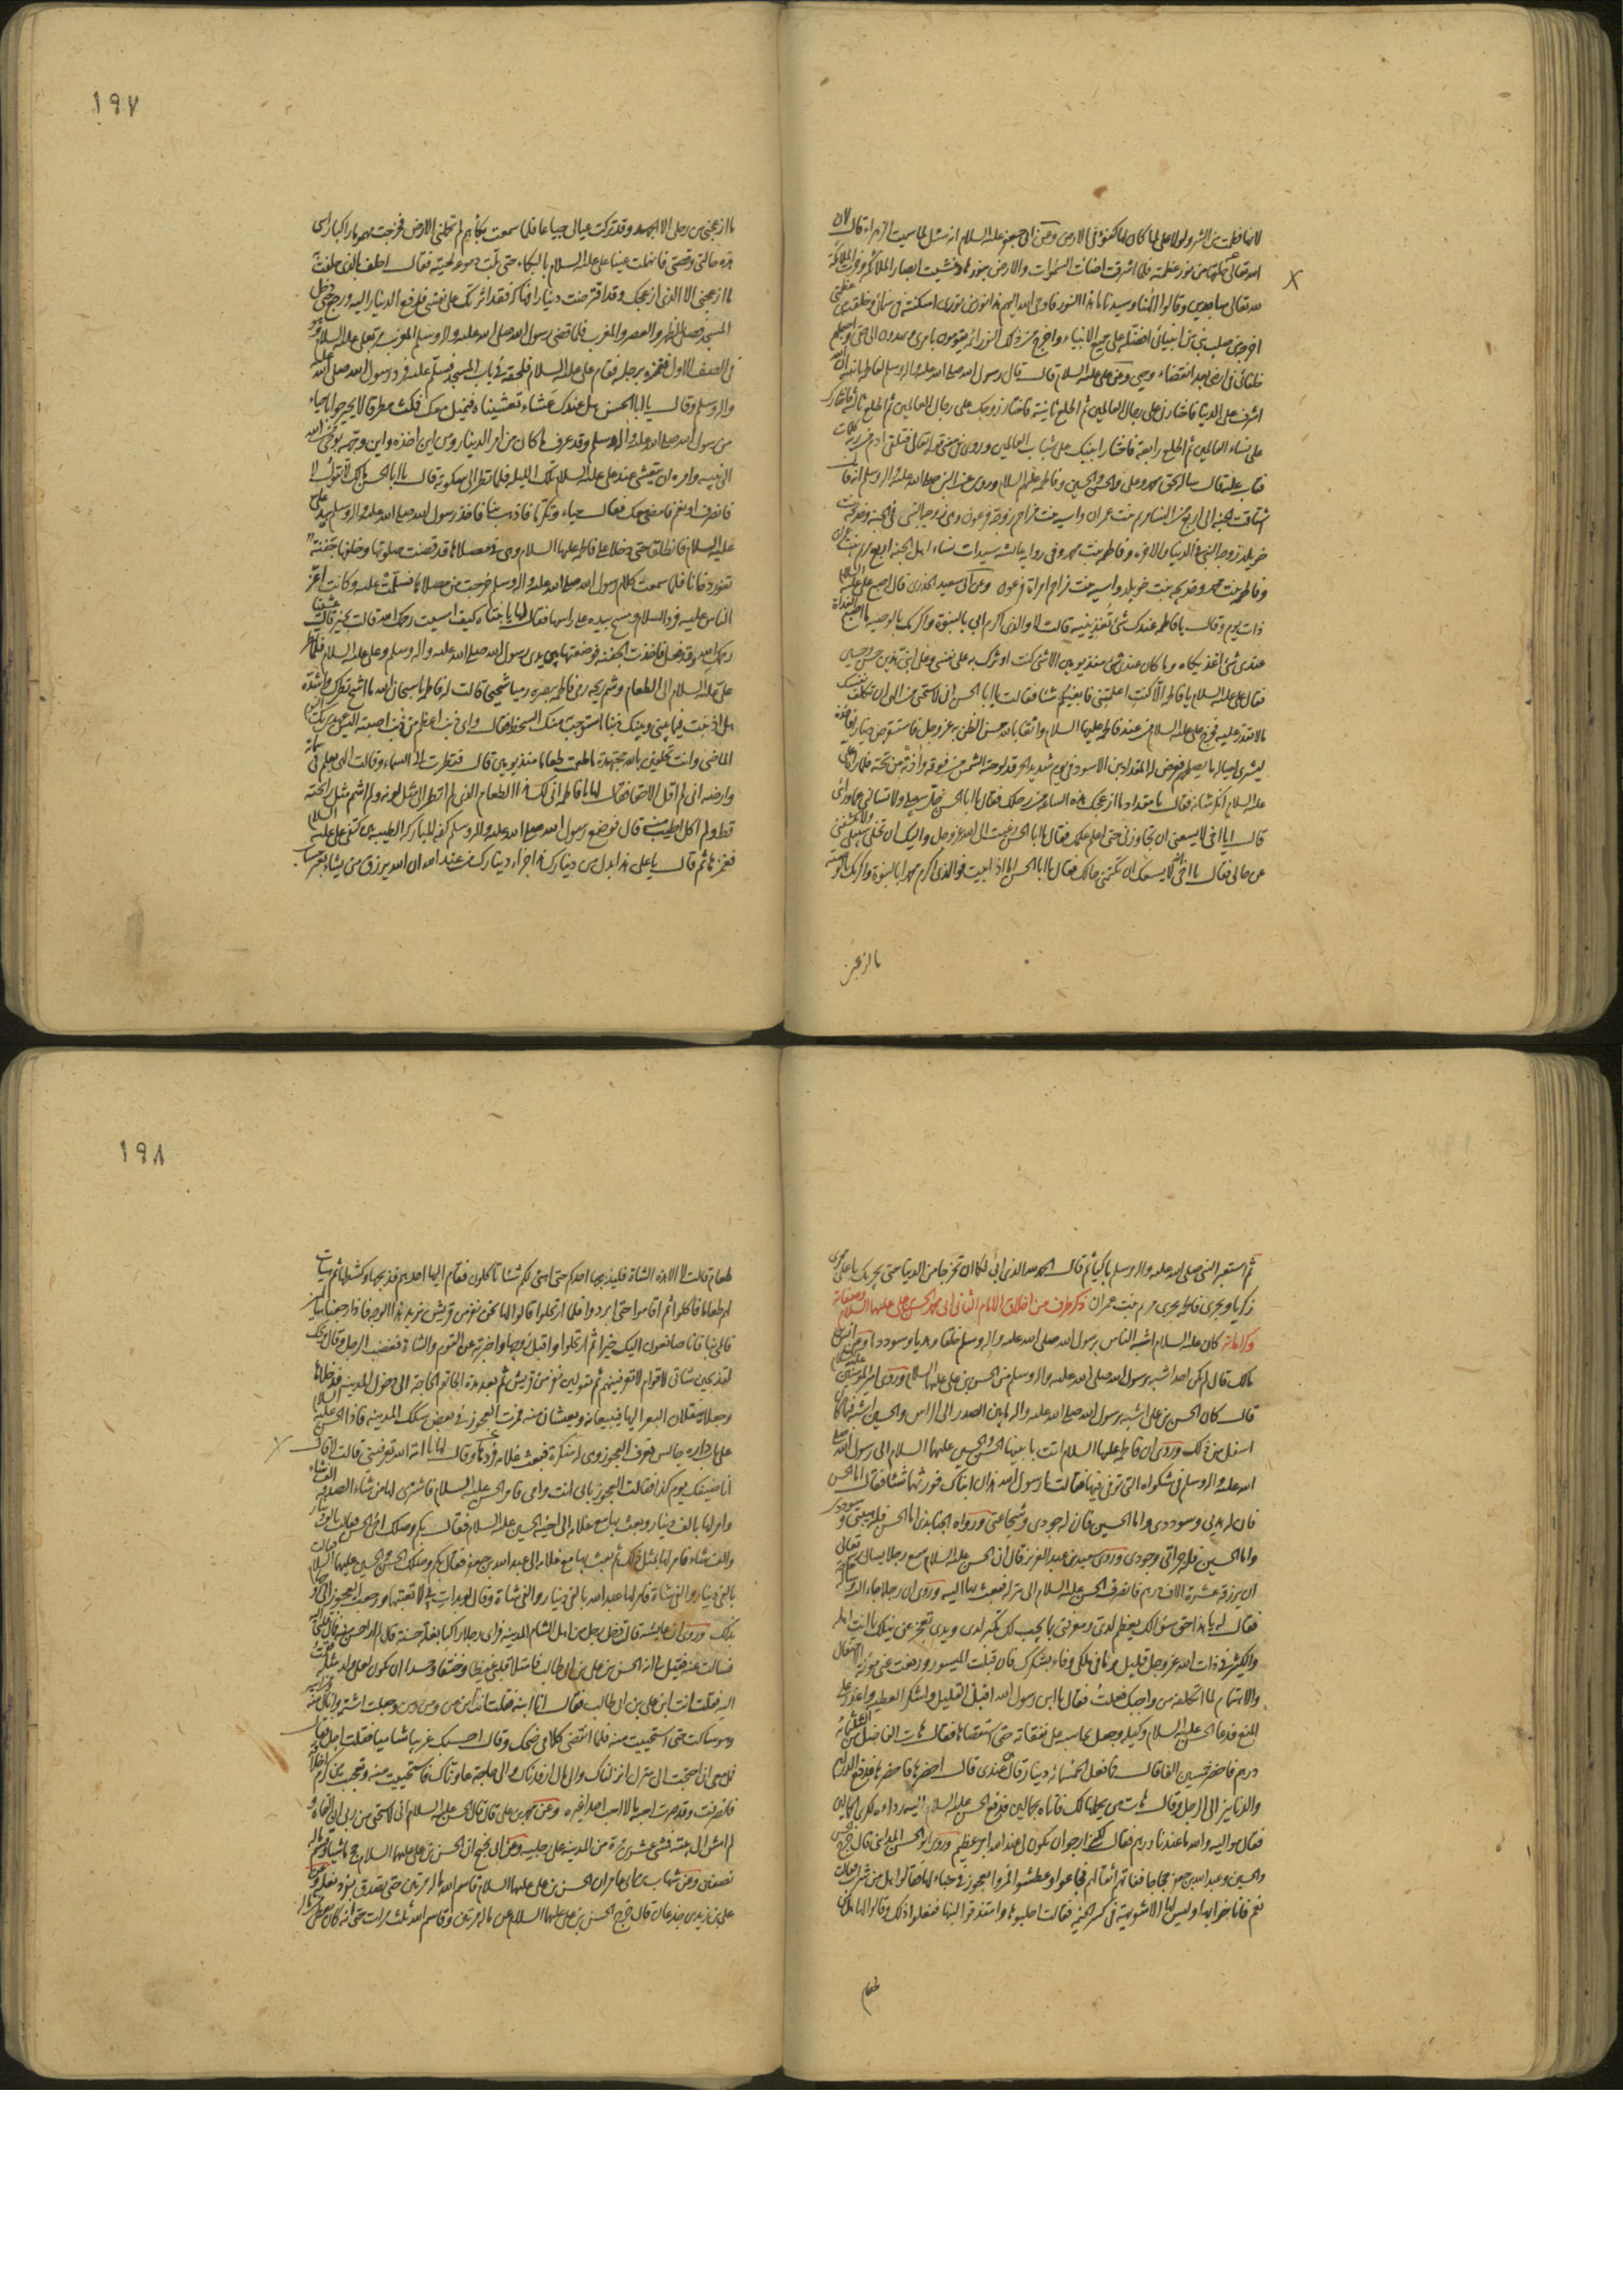 ١٩٧
لانها فطمت من الشر ولولا علي لما كان لها كفؤ في الارض وعن ابي جعفر عليه السلام انه سئل لما سميت الزهراء قال لان
الله تعالى خلقها من نور عظمته فلما اشرقت اضاءت السموات والارض بنورها وغشيت ابصار الملائكة وخرت الملائكة
لله تعالى ساجدين وقالوا الهنا وسيدنا ما هذا النور فاوحى الله اليهم هذا نور من نوري اسكنته في سمائي وخلقته من عظمتي
اخرجه من صلب نبي من انبيائي افضله على جميع الانبياء واخرج من ذلك النور ائمة يقومون بامري ويهدون الى حقي واجعلهم
خلفائي في ارضي بعد انقضاء وحيي وعن علي عليه السلام قال قال رسول الله صلى الله عليه واله وسلم لفاطمة ان الله
اشرف على الدنيا فاختارني على رجال العالمين ثم اطلع ثانية فاختار زوجك على رجال العالمين ثم اطلع ثالثة فاختارك
على نساء العالمين ثم اطلع رابعة فاختار ابنيك على شباب العالمين وروي في قوله تعالى فتلقى ادم من ربه كلمات
فتاب عليه قال سأله بحق محمد وعلي والحسن والحسين وفاطمة عليهم السلام وروي عن النبي صلى الله عليه واله وسلم انه قال
اشتاقت الجنة الى اربع من النساء مريم بنت عمران واسية بنت مزاحم زوجة فرعون وهي زوجة النبي في الجنة وخديجة بنت
خويلد زوجة النبي في الدنيا والاخرة وفاطمة بنت محمد وفي رواية عائشة سيدات نساء اهل الجنة اربع مريم بنت عمران
وفاطمة بنت محمد وخديجة بنت خويلد واسية بنت مزاحم امراة فرعون وعن ابي سعيد الخدري قال اصبح علي عليه السلام
ذات يوم وقال يا فاطمة عندك شيء تغذينيه قالت لا والذي اكرم ابي بالنبوة واكرمك بالوصية ما اصبح الغداة
عندي شيء اغذيكاه وما كان عندي شيء منذ يومين الا شيء كنت اوثرك به على نفسي وعلى ابني هذين حسن وحسين
فقال علي عليه السلام يا فاطمة الا كنت اعلمتني فابغيكم شيئا فقالت يا ابا الحسن اني لاستحيي من الهي ان تكلف نفسك
ما لا تقدر عليه فخرج علي عليه السلام من عند فاطمة عليها السلام واثقا بالله حسن الظن به عز وجل فاستقرض دينارا فاخذه
ليشتري لعياله ما يصلحهم فعرض له المقداد بن الاسود في يوم شديد الحر قد لوحته الشمس من فوقه واذته من تحته فلما راه علي
عليه السلام انكر شانه فقال يا مقداد ما ازعجك هذه الساعة من رحلك فقال يا ابا الحسن خل سبيلي ولا تسالني عما ورائي
قال يا اخي لا يسعني ان تجاوزني حتى اعلم علمك فقال يا ابا الحسن رغبت الى الله عز وجل واليك ان تخلي سبيلي ولا تكشفني
عن حالي فقال يا اخي لا يسعك ان تكتمني حالك فقال يا ابا الحسن اما اذا ابيت فوالذي اكرم محمدا بالنبوة واكرمك بالوصية
ما ازعجني
ما ازعجني من رحلي الا الجهد وقد تركت عيالي جياعا فلما سمعت بكائهم لم تحملني الارض فخرجت مهموما راكبا راسي
هذه حالتي وقصتي فانهملت عينا علي عليه السلام بالبكاء حتى بلت دموعه لحيته فقال احلف بالذي حلفت به
ما ازعجني الا الذي ازعجك وقد اقترضت دينارا فهاكه فقد اثرتك على نفسي فدفع الدينار اليه ورجع حتى دخل
المسجد فصلى الظهر والعصر والمغرب فلما قضى رسول الله صلى الله عليه واله وسلم المغرب مر بعلي عليه السلام وهو
في الصف الاول فغمزه برجله فقام علي عليه السلام فلحقه في باب المسجد فسلم عليه فرد رسول الله صلى الله عليه
واله وسلم وقال يا ابا الحسن هل عندك عشاء تعشيناه فنميل معك فمكث مطرقا لا يحير جوابا حياء
من رسول الله صلى الله عليه واله وسلم وقد عرف ما كان من امر الدينار ومن اين اخذه واين وجهه بوحي من الله
الى نبيه وامره ان يتعشى عند علي عليه السلام تلك الليلة فلما نظر الى سكوته قال يا ابا الحسن مالك لا تقول لا
فانصرف او نعم فامضي معك فقال حياء وتكرما فاذهب بنا فاخذ رسول الله صلى الله عليه واله وسلم بيد علي
عليه السلام فانطلقا حتى دخلا على فاطمة عليها السلام وهي في مصلاها قد قضت صلوتها وخلفها جفنة
تفور دخانا فلما سمعت كلام رسول الله صلى الله عليه واله وسلم خرجت من مصلاها فسلمت عليه وكانت اعز
الناس عليه فرد السلام ومسح بيده على راسها فقال لها يا بنتاه كيف امسيت رحمك الله قالت بخير قال عشينا
رحمك الله وقد فعل فاخذت الجفنة فوضعتها بين يدي رسول الله صلى الله عليه واله وسلم وعلي عليه السلام فلما نظر
علي عليه السلام الى الطعام وشم ريحه رمى فاطمة ببصره رميا شحيحا قالت له فاطمة يا سبحان الله ما اشح نظرك واشده
هل اذنبت فيما بيني وبينك ذنبا استوجبت منك السخط فقال واي ذنب اعظم من ذنب اصبته اليس عهدي بك اليوم
الماضي وانت تحلفين بالله مجتهدة ما طعمت طعاما منذ يومين قال فنظرت الى السماء وقالت الهي يعلم في سمائه
وارضه اني لم اقل الا حقا فقال لها يا فاطمة انى لك هذا الطعام الذي لم انظر الى مثل لونه ولم اشم مثل رائحته
قط ولم اكل اطيب منه قال فوضع رسول الله صلى الله عليه واله وسلم كفه المباركة الطيبة بين كتفي علي عليه السلام
فغمزها ثم قال يا علي هذا بدل من دينارك هذا جزاء دينارك من عند الله ان الله يرزق من يشاء بغير حساب
١٩٨
ثم استعبر النبي صلى الله عليه واله وسلم باكيا ثم قال الحمد لله الذي ابى لكما ان تخرجا من الدنيا حتى يجريك يا علي مجرى
زكريا ويجري فاطمة مجرى مريم بنت عمران ذكر طرف من اخلاق الامام الثاني ابي محمد الحسن بن علي عليهما السلام وصفاته
وكراماته كان عليه السلام اشبه الناس برسول الله صلى الله عليه واله وسلم خلقا وهديا وسوددا وعن انس بن
مالك قال لم يكن احد اشبه برسول الله صلى الله عليه واله وسلم من الحسن بن علي عليهما السلام وروي عن امير المؤمنين عليه السلام
قال كان الحسن بن علي اشبه برسول الله صلى الله عليه واله ما بين الصدر الى الراس والحسين اشبه فيما كان
اسفل من ذلك وروي ان فاطمة عليها السلام اتت بابنيها الحسن والحسين عليهما السلام الى رسول الله صلى
الله عليه واله وسلم في شكواه التي توفي فيها فقالت يا رسول الله هذان ابناك فورثهما شيئا فقال اما الحسن
فان له هديي وسوددي واما الحسين فان له جودي وشجاعتي ورواه الجنابذي اما الحسن فله هيبتي وسوددي
واما الحسين فله جراتي وجودي وروي سعيد بن عبد العزيز قال ان الحسن عليه السلام سمع رجلا يسال ربه تعالى
ان يرزقه عشرة الاف درهم فانصرف الحسن عليه السلام الى منزله فبعث بها اليه وروي ان رجلا جاء اليه وساله
فقال له يا هذا حق سؤالك يعظم لدي ومعرفتي بما يجب لك تكبر لدي ويدي تعجز عن نيلك بما انت اهله
والكثير في ذات الله عز وجل قليل وما في ملكي وفاء بشكرك فان قبلت الميسور ورفعت عني مؤنة الاحتفال
والاهتمام لما اتكلفه من واجبك فعلت فقال يا ابن رسول الله اقبل القليل واشكر العطية واعذر على
المنع فدعا الحسن عليه السلام وكيله وجعل يحاسبه على نفقاته حتى استقصاها فقال هات الفاضل من الثلثمائة
درهم فاحضر خمسين الفا قال فما فعل الخمسمائة دينار قال عندي قال احضرها فاحضرها فدفع الدراهم
والدنانير الى الرجل وقال هات من يحملها لك فاتاه بحمالين فدفع الحسن عليه السلام اليهم رداءه لكرى الحمالين
فقال مواليه والله ما عندنا درهم فقال لكني ارجو ان يكون لي عند الله اجر عظيم وروى ابو الحسن المدايني قال خرج الحسن
والحسين وعبد الله بن جعفر حجاجا ففاتهم اثقالهم فجاعوا وعطشوا فمروا بعجوز في خباء لها فقالوا هل من شراب فقالت
نعم فاناخوا بها وليس لها الا شويهة في كسر الخيمة فقالت احلبوها وامتذقوا لبنها ففعلوا ذلك وقالوا لها هل من
طعام
طعام قالت لا الا هذه الشاة فليذبحها احدكم حتى اهيئ لكم شيئا تاكلون فقام اليها احدهم فذبحها وكشطها ثم هيات
لهم طعاما فاكلوا ثم اقاموا حتى ابردوا فلما ارتحلوا قالوا لها نحن نفر من قريش نريد هذا الوجه فاذا رجعنا سالمين
فالمي بنا فانا صانعون اليك خيرا ثم ارتحلوا واقبل زوجها واخبرته عن القوم والشاة فغضب الرجل وقال ويحك
تذبحين شاتي لاقوام لا تعرفينهم ثم تقولين نفر من قريش ثم بعد مدة الجاتهم الحاجة الى دخول المدينة فدخلاها
وجعلا ينقلان البعر اليها ويبيعانه ويعيشان منه فمرت العجوز في بعض سكك المدينة فاذا الحسن عليه السلام
على باب داره جالس فعرف العجوز وهي له منكرة فبعث غلامه فردها وقال لها يا امة الله تعرفيني قالت لا قال
انا ضيفك يوم كذا فقالت العجوز بابي انت وامي فامر الحسن عليه السلام فاشترى لها من شاء الصدقة الف شاة
وامر لها بالف دينار وبعث بها مع غلامه الى اخيه الحسين عليه السلام فقال بكم وصلك اخي الحسن فقالت بالف دينار
والف شاة فامر لها بمثل ذلك ثم بعث بها مع غلامه الى عبد الله بن جعفر فقال بكم وصلك الحسن والحسين عليهما السلام فقالت
بالفي دينار والفي شاة فامر لها عبد الله بالفي دينار والفي شاة وقال لو بدات بي لاتعبتهما ورجعت العجوز الى زوجها
بذلك وروى ابن عايشة قال دخل رجل من اهل الشام المدينة فراى رجلا راكبا بغلة حسنة قال لم ار احسن منه فمال قلبي اليه
فسالت عنه فقيل لي انه الحسن بن علي بن ابي طالب فامتلا قلبي غيظا وحنقا وحسدا ان يكون لعلي ولد مثله فقمت
اليه فقلت انت ابن علي بن ابي طالب فقال انا ابنه فقلت انت ابن من ومن ومن وجعلت اشتمه وانال منه ومن ابيه
وهو ساكت حتى استحييت منه فلما انقضى كلامي ضحك وقال احسبك غريبا شاميا فقلت اجل فقال
فمل معي ان احتجت الى منزل انزلناك والى مال ارفدناك والى حاجة عاوناك فاستحييت منه وعجبت من كرم اخلاقه
فانصرفت وقد صرت احبه ما لا احب احدا غيره وعن محمد بن علي قال قال الحسن عليه السلام اني لاستحيي من ربي ان القاه و
لم امش الى بيته فمشى عشرين مرة من المدينة على رجليه وعن ابي نجيح ان الحسن بن علي عليهما السلام حج ماشيا وقسم ماله
نصفين وعن شهاب بن ابي عامر ان الحسن بن علي عليهما السلام قاسم الله ماله مرتين حتى تصدق بفرد نعله وعن
علي بن زيد بن جذعان قال خرج الحسن بن علي عليهما السلام من ماله مرتين وقاسم الله ثلث مرات حتى انه كان يعطي نعلا